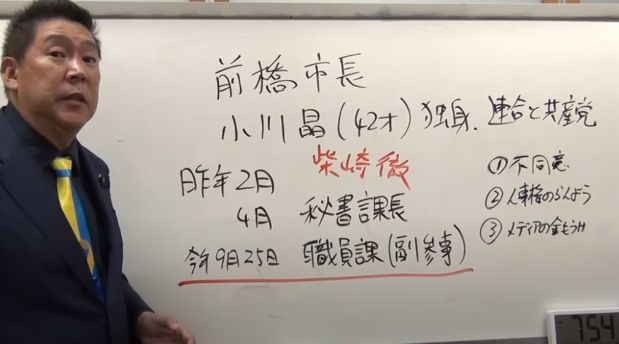 前橋市長
小川晶(42才)独身、連合と共産党
柴崎徹
昨年2月
4月 秘書課長
今年9月25日 職員課(副参事)
①不同意
②人事権のらんよう
③メディアの金もうけ
754